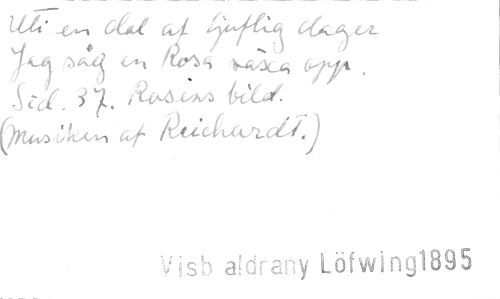 Uti en dal af ljuflig dager
Jag såg en Rosa växa opp.
Sid. 37. Rosens bild.
(Musiken af Reichardt.)
Visb aldrany Löfwing1895